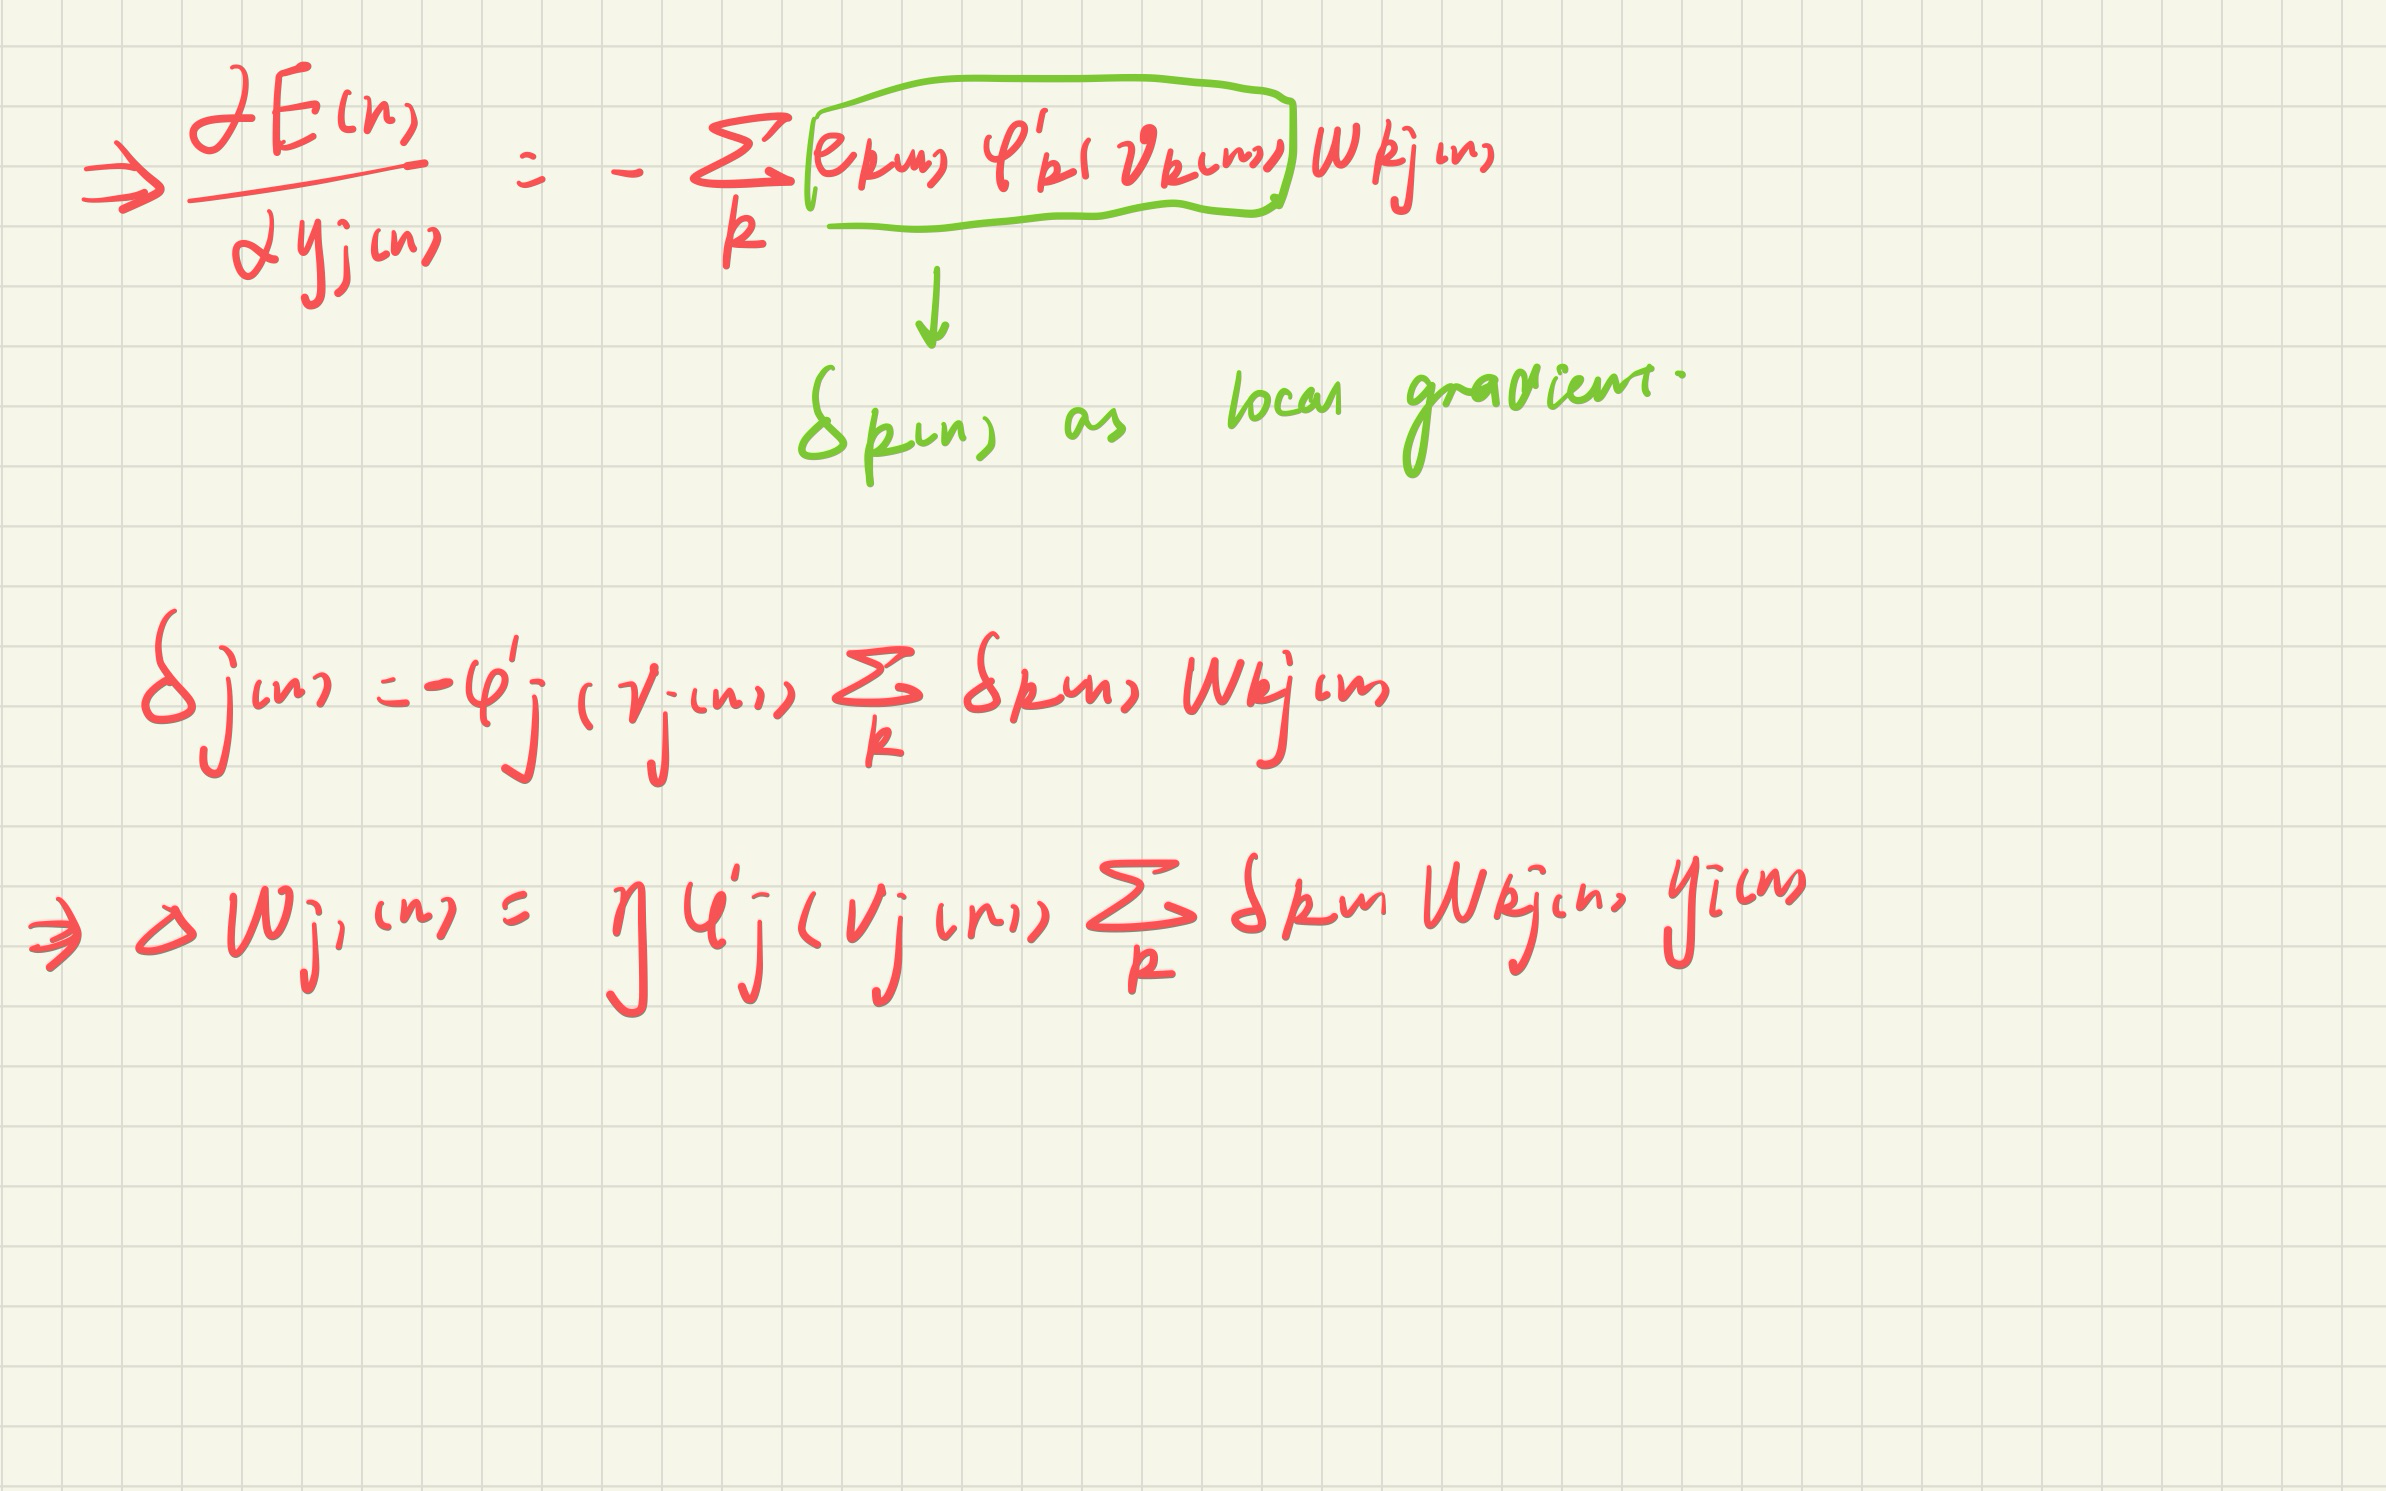 ⇒ ∂E(n) / ∂yj(n) = - Σk ek(n) φ'k(vk(n)) wkj(n)
↓
δk(n) as local gradient.
δj(n) = - φ'j(vj(n)) Σk δk(n) wkj(n)
⇒ Δwji(n) = η φ'j(vj(n)) Σk δk(n) wkj(n) yi(n)